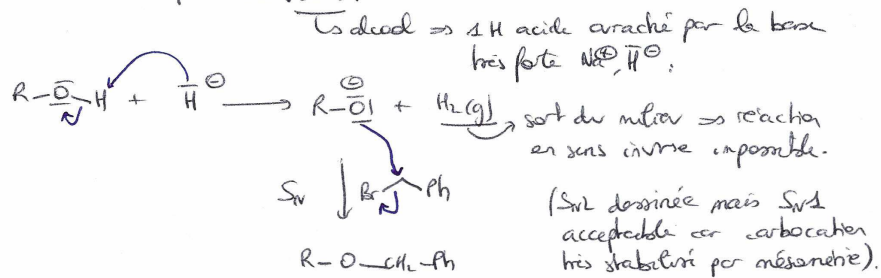 ↳ alcool ⇒ 1 H acide arraché par la base
très forte Na⊕, H⊖.
R–O–H + H⊖ ⟶ R–O| ⊖ + H₂(g) → sort du milieu ⇒ réaction
en sens inverse impossible.
SN Br Ph
(SN2 dessinée mais SN1
acceptable car carbocation
très stabilisé par mésomérie).
R–O–CH₂–Ph